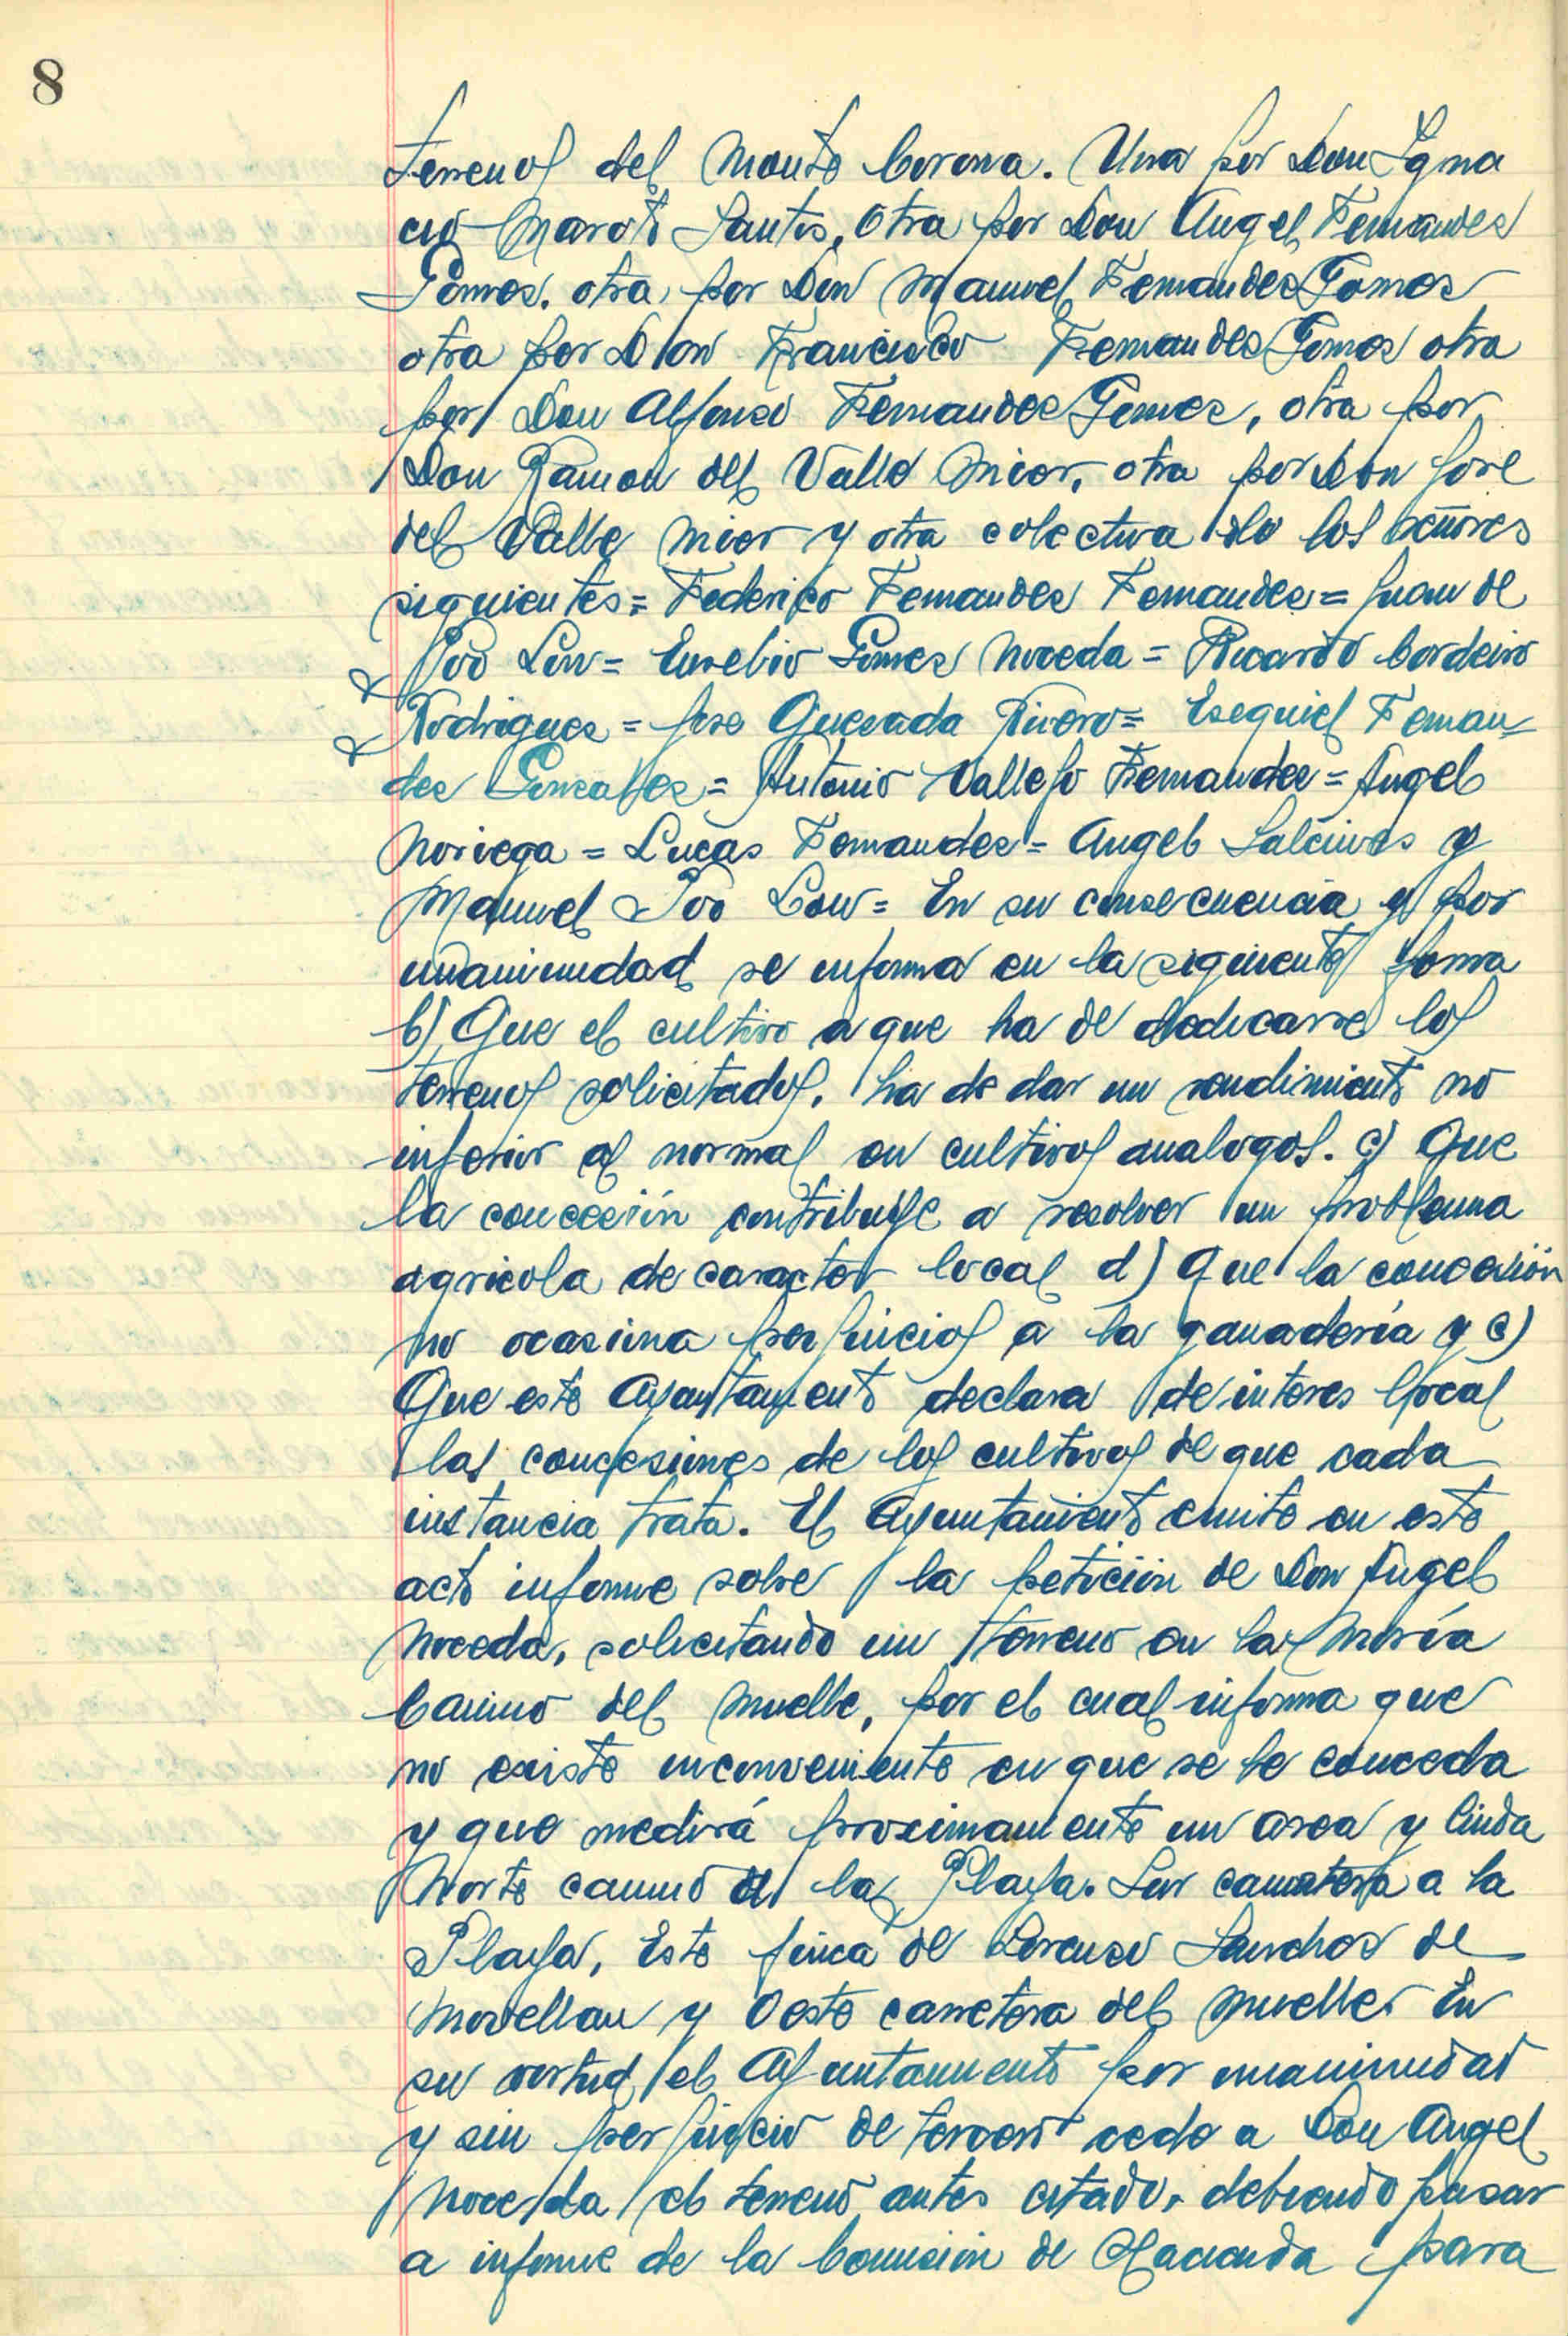 8
terrenos del Monte Corona. Una por Don Igna
cio Maroto Santos, otra por Don Angel Fernandez
Gomez. otra por Don Manuel Fernandez Gomez
otra por Don Francisco Fernandez Gomez otra
por Don Alfonso Fernandez Gomez, otra por
Don Ramon del Valle Mier, otra por Don Jose
del Valle Mier y otra colectiva de los señores
siguientes = Federico Fernandez Fernandez = Juan de
Poo Lon = Eusebio Gomez Noceda = Ricardo Cordeiro
Rodriguez = Jose Quevada Rivero = Esequiel Fernan-
dez Gonzalez = Antonio Vallejo Fernandez = Angel
Noriega = Lucas Fernandez = Angel Salcines y
Manuel Poo Lon = En su consecuencia y por
unanimidad se informa en la siguiente forma
b) Que el cultivo a que ha de dedicarse los
terrenos solicitados, ha de dar un rendimiento no
inferior al normal en cultivos analogos. c) Que
la concesión contribuye a resolver un problema
agricola de caracter local d) Que la concesión
no ocasiona perjuicios a la ganadería y e)
Que este Ayuntamiento declara de interes local
las concesiones de los cultivos de que cada
instancia trata. El Ayuntamiento emite en este
acto informe sobre la petición de Don Angel
Noceda, solicitando un terreno en la María
Camino del Muelle, por el cual informa que
no existe inconveniente en que se le conceda
y que medirá proximamente un area y linda
Norte camino de la Playa. Sur carretera a la
Playa, Este finca de Lorenzo Sanchez de
Movellan y Oeste carretera del Muelle. En
su virtud el Ayuntamiento por unanimidad
y sin perjuicio de tercero cede a Don Angel
Noceda el terreno antes citado, debiendo pasar
a informe de la Comision de Hacienda para